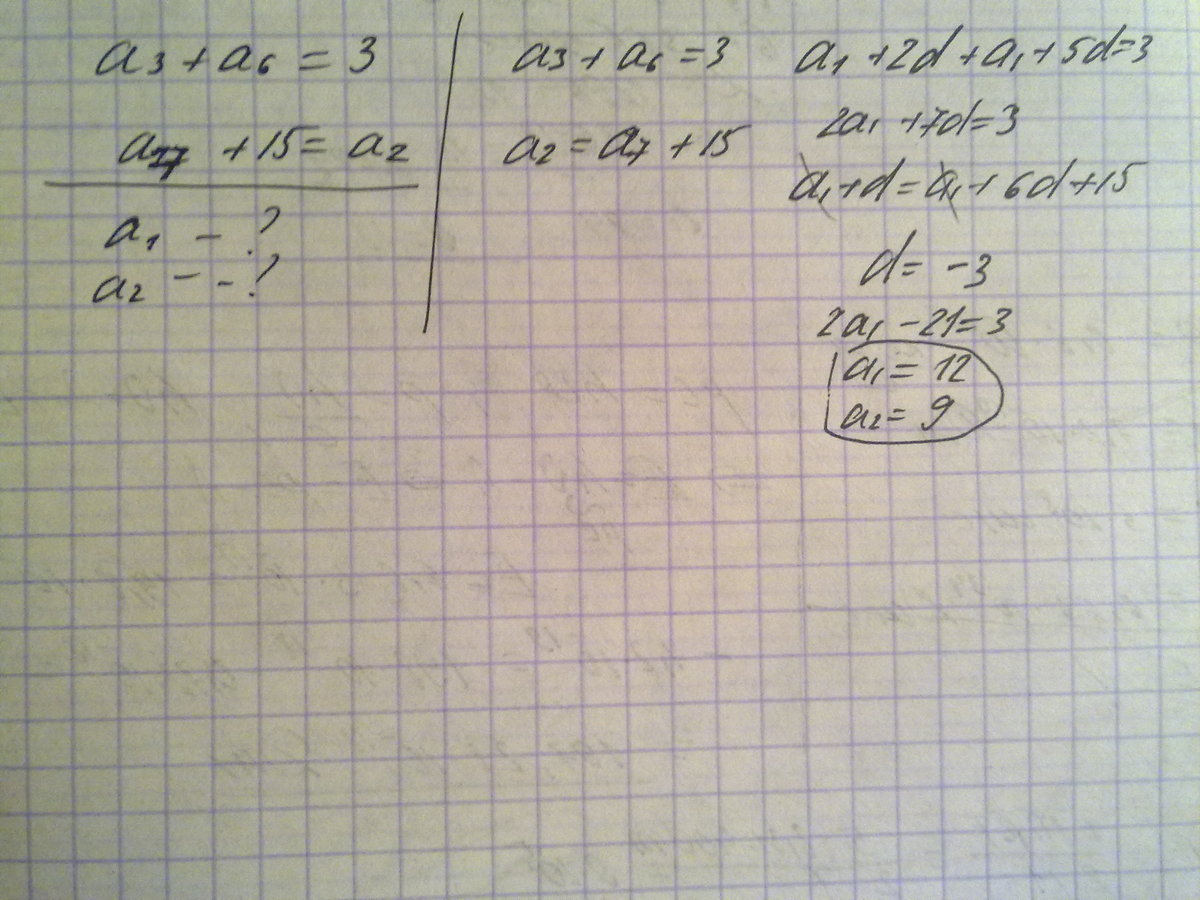 a₃ + a₆ = 3
a₇ + 15 = a₂
a₁ - ?
a₂ - - ?
a₃ + a₆ = 3
a₂ = a₇ + 15
a₁ + 2d + a₁ + 5d = 3
2a₁ + 7d = 3
a₁ + d = a₁ + 6d + 15
d = -3
2a₁ - 21 = 3
a₁ = 12
a₂ = 9